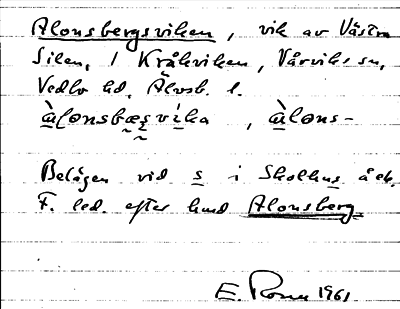 Alonsbergsviken, vik av Västra
Silen, / Kråkviken, Vårviks sn,
Vedbo hd, Älvsb. l.
ὰlonsbæsvi̇́ka, ὰlons-
Belägen vid s i Skolhus å ek.
F. led. efter hmd Alonsberg
E. 1961